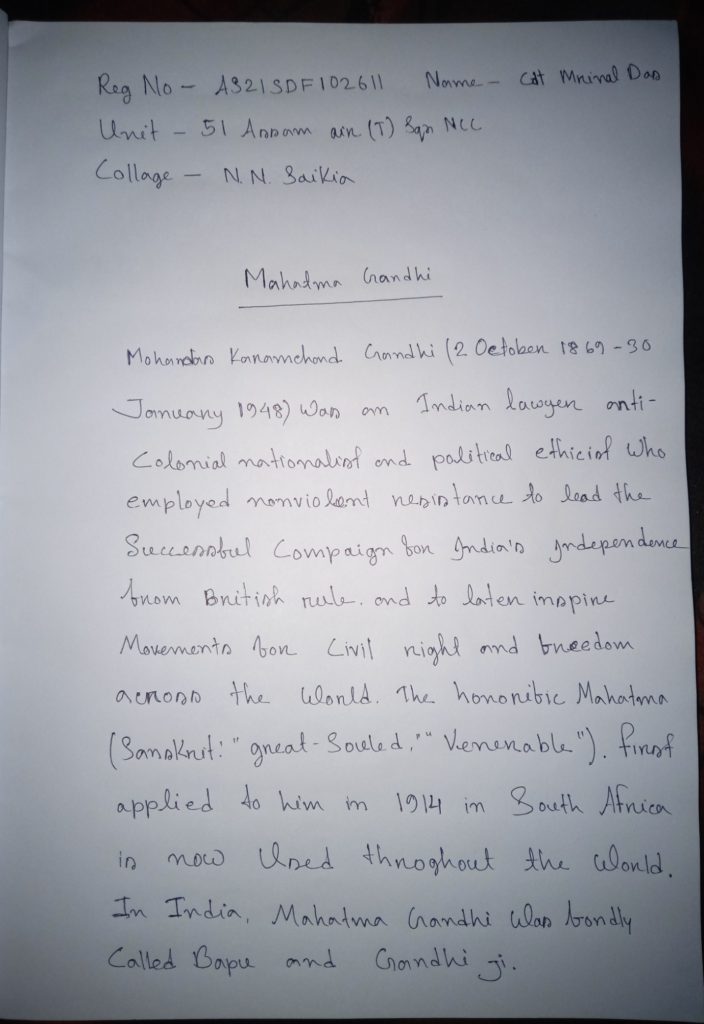 Reg No - AS21SDF102611 Name - Cdt Mrinal Das
Unit - 51 Assam air (T) Sqn NCC
Collage - N.N. Saikia
Mahatma Gandhi
Mohandas Karamchand Gandhi (2 October 1869 - 30
January 1948) was an Indian lawyer anti-
Colonial nationalist and political ethicist Who
employed nonviolent resistance to lead the
Successful Campaign for India's Independence
from British rule. and to later inspire
Movements for Civil right and freedom
across the World. The honorific Mahatma
(Sanskrit: "great-Souled," "Venerable"). first
applied to him in 1914 in South Africa
is now Used throghout the World.
In India, Mahatma Gandhi Was fondly
Called Bapu and Gandhi ji.